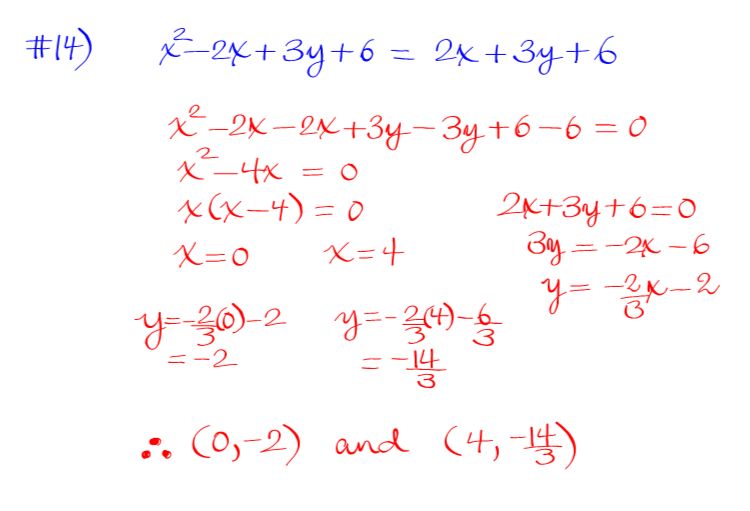 #14) x²-2x+3y+6 = 2x+3y+6
x²-2x-2x+3y-3y+6-6=0
x²-4x = 0
x(x-4) = 0
x=0 x=4
2x+3y+6=0
3y=-2x-6
y=-2/3x-2
y=-2/3(0)-2
=-2
y=-2/3(4)-6/3
=-14/3
∴ (0,-2) and (4,-14/3)